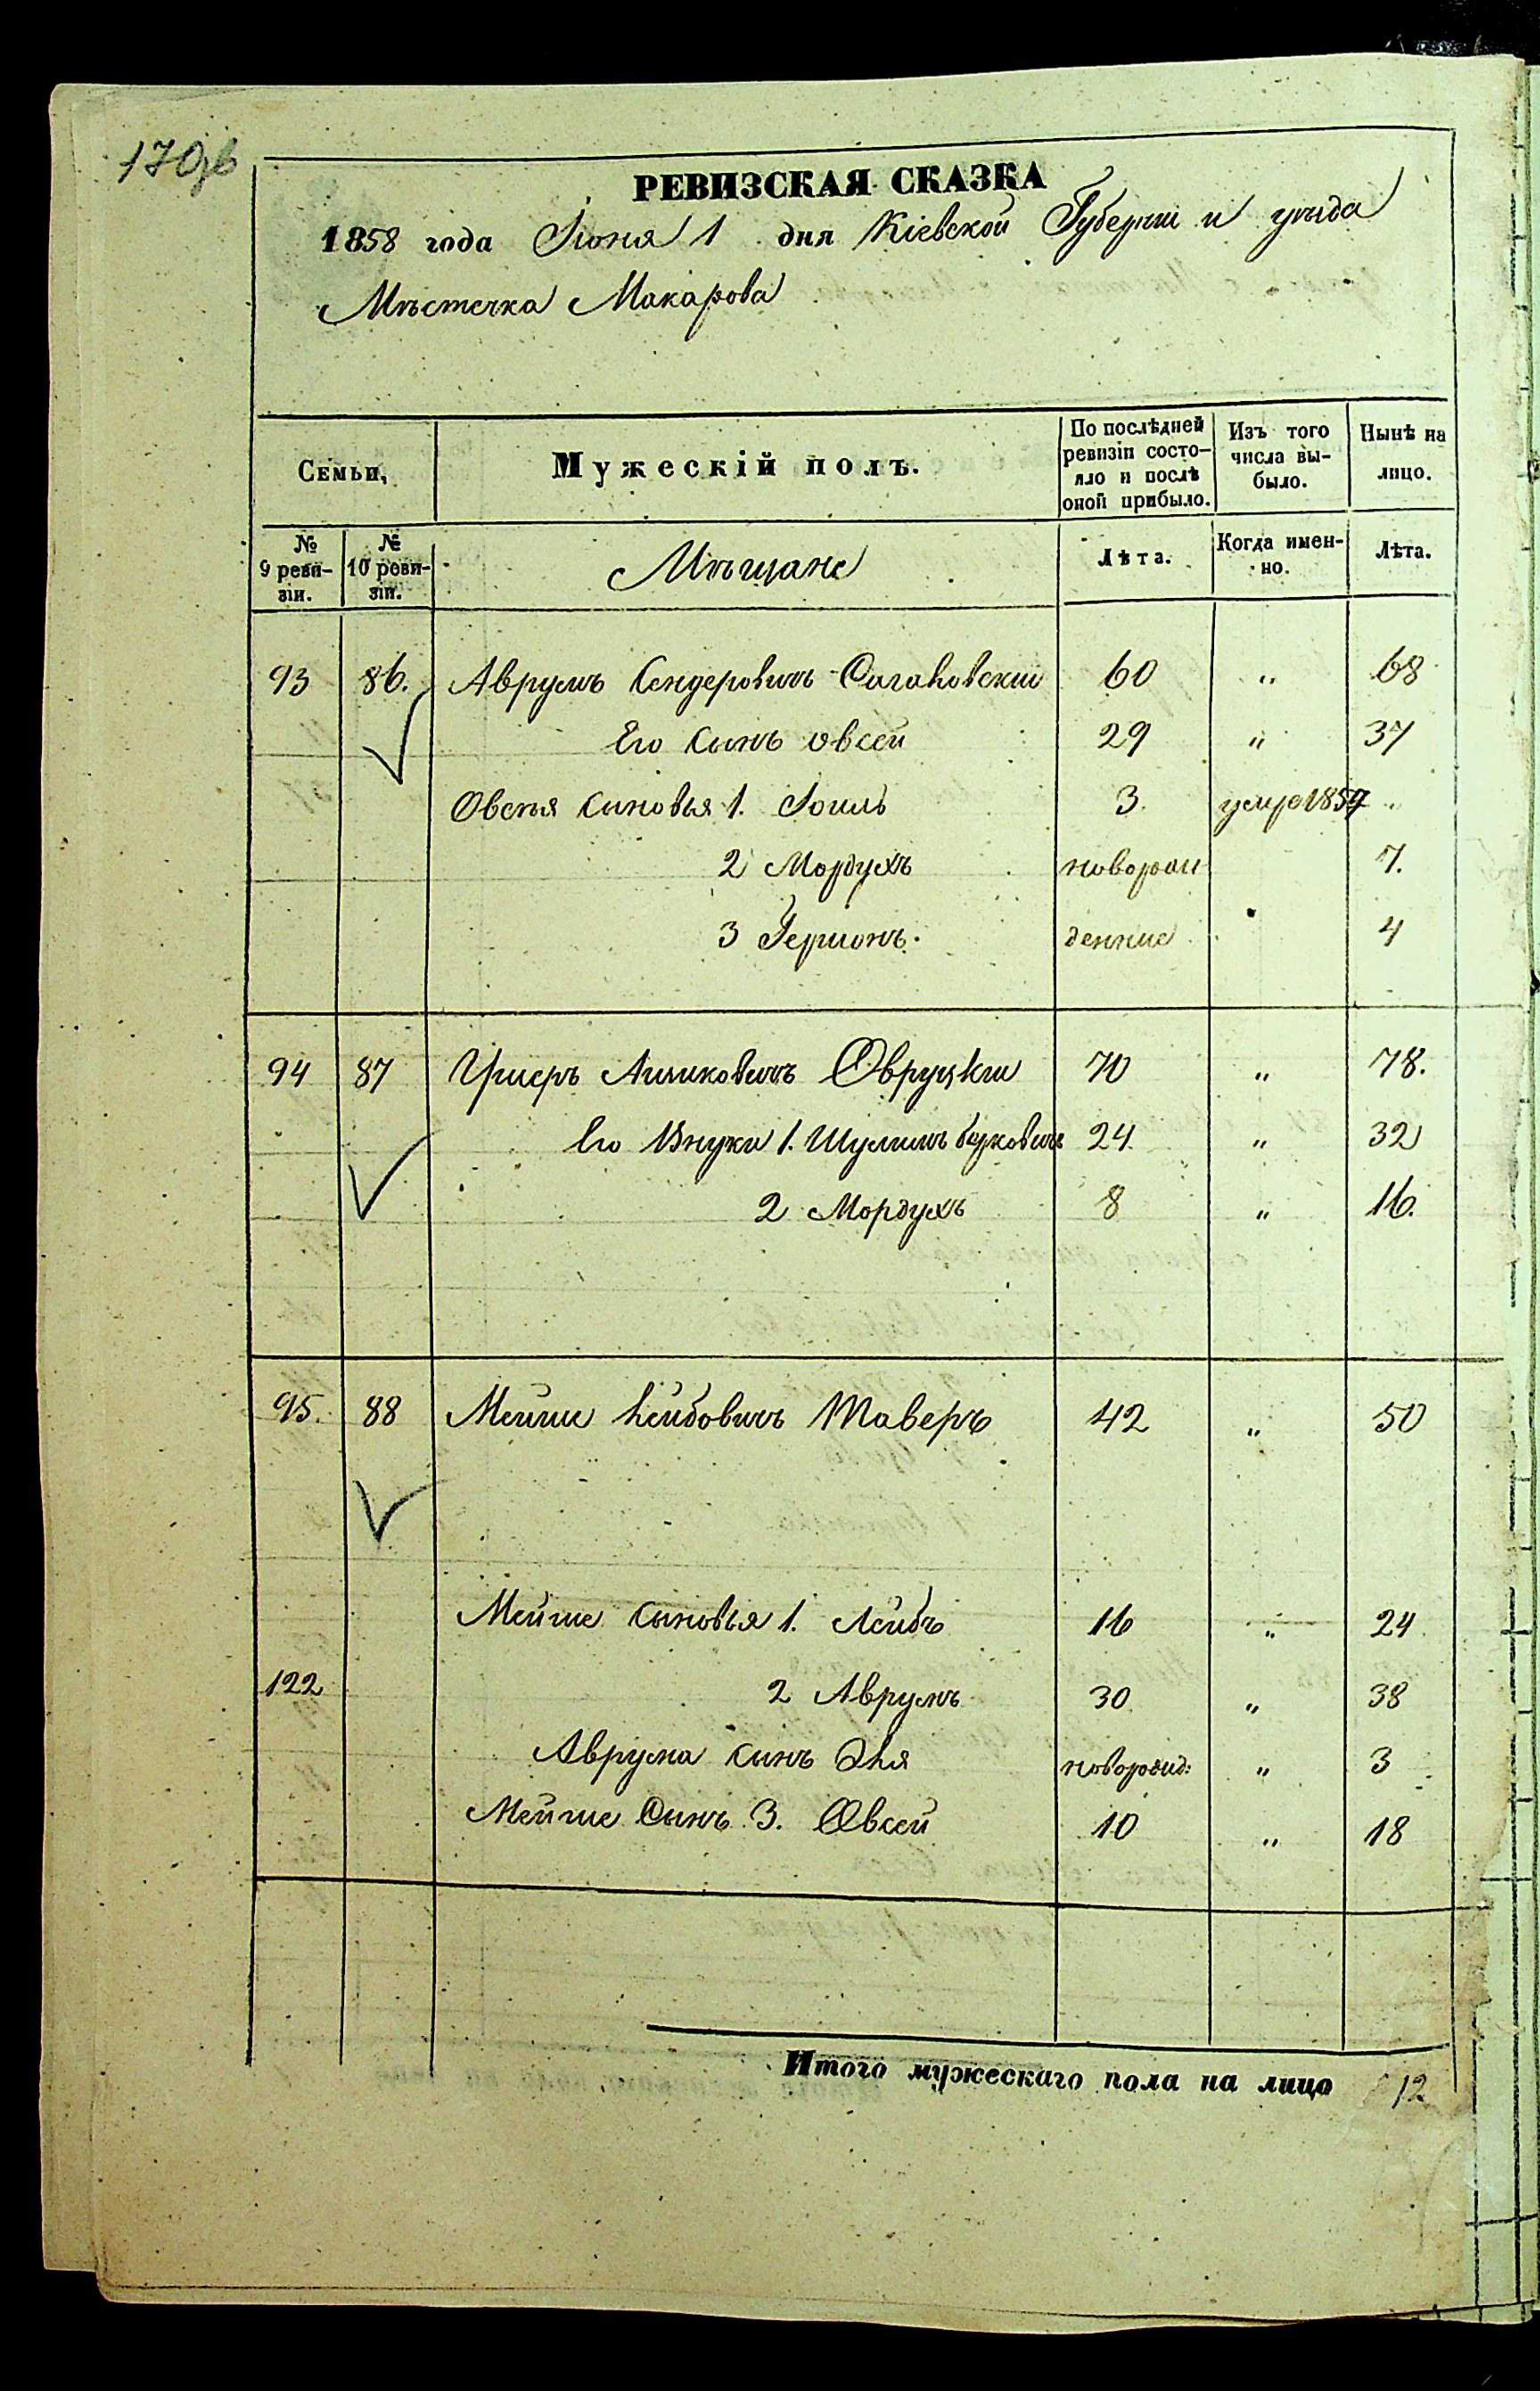 170об
РЕВИЗСКАЯ СКАЗКА
1858 года Іюня 1 дня Кіевской Губерніи и уѣзда
Мѣстечка Макарова
Семьи, Мужескій полъ. По послѣдней ревизіи состо- яло и послѣ оной прибыло. Изъ того числа вы- было. Нынѣ на лицо.
№ 9 реви- зіи. № 10 реви- зіи. Мѣщане Лѣта. Когда имен- но. Лѣта.
93 86. Аврумъ Сендеровичъ 60 „ 68
Его сынъ Овсей 29 „ 37
Овсѣя сыновья 1. Іоиль 3. умре 1857 „
2 Мордухъ новорож 7.
3 Гершонъ. денние 4
94 87 Ушеръ Овруцкіи 70 „ 78.
Его Внуки 1. Шулимъ 24 „ 32
2 Мордухъ 8 „ 16.
95. 88 Мейше Лейбовичъ Таверъ 42 „ 50
Мейше сыновья 1. Лейбъ 16 „ 24
122 2 Аврумъ 30 „ 38
Аврума сынъ Эля новорожд: „ 3
Мейше Сынъ 3. Овсей 10 „ 18
Итого мужескаго пола на лицо 12